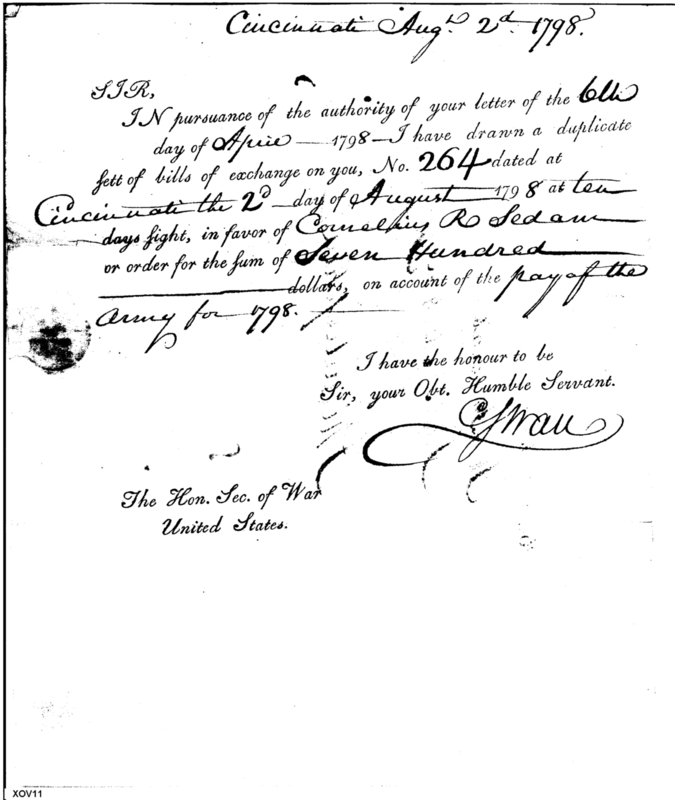 Cincinnati Augt. 2d. 1798.
SIR,
IN pursuance of the authority of your letter of the 6th
day of April 1798 I have drawn a duplicate
sett of bills of exchange on you, No. 264 dated at
Cincinnati the 2d day of August 1798 at ten
days sight, in favor of Cornelius R Sedam
or order for the sum of Seven Hundred
dollars, on account of the pay of the
Army for 1798.
I have the honour to be
Sir, your Obt. Humble Servant.
C Swan
The Hon. Sec. of War
United States.
XOV11